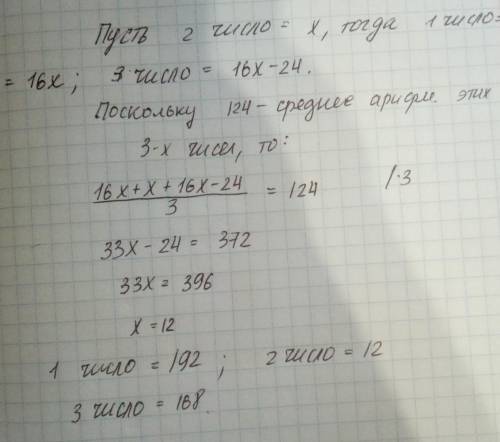 Пусть 2 число = x, тогда 1 число=
= 16x; 3 число = 16x-24.
Поскольку 124 - среднее арифм. этих
3-х чисел, то:
16x+x+16x-24 / 3 = 124 /·3
33x-24 = 372
33x = 396
x = 12
1 число = 192; 2 число = 12
3 число = 168.